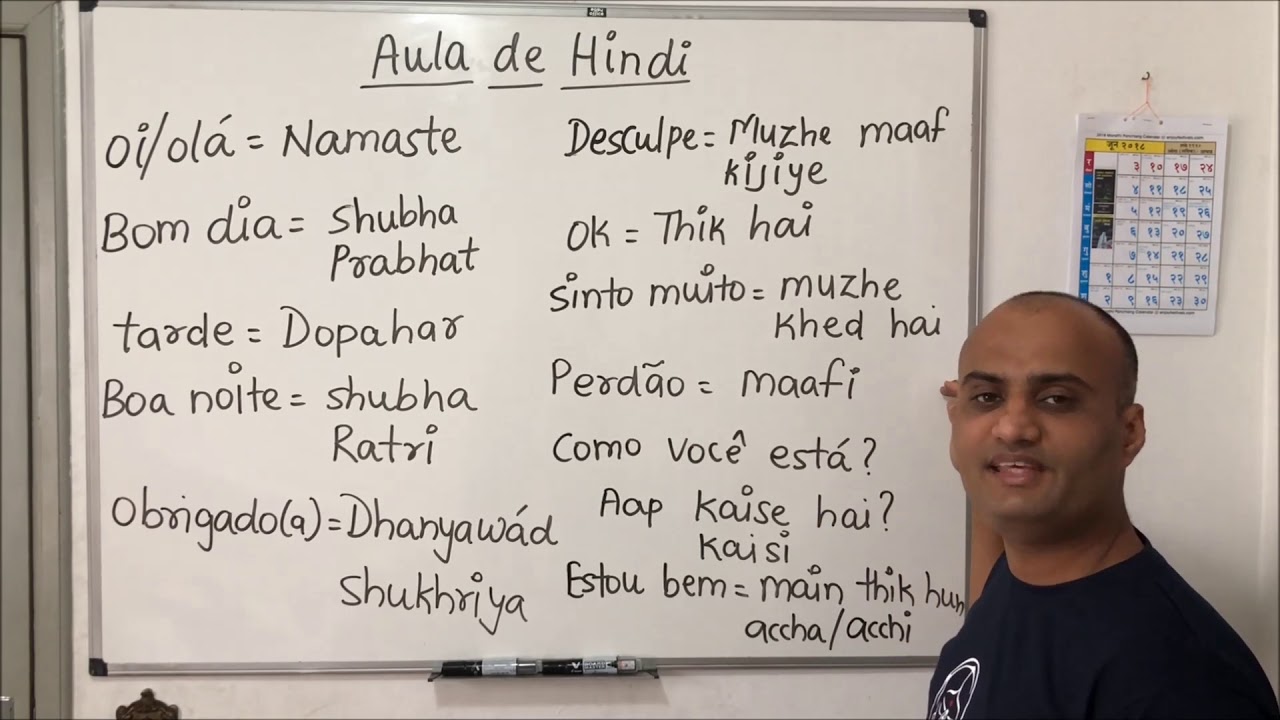 Aula de Hindi
Oi/olá = Namaste
Bom dia = Shubha
Prabhat
tarde = Dopahar
Boa noite = shubha
Ratri
Obrigado(a) = Dhanyawád
Shukhriya
Desculpe = Muzhe maaf
kijiye
OK = Thik hai
Sinto muito = muzhe
khed hai
Perdão = maafi
Como você está?
Aap kaise hai?
kaisi
Estou bem = main thik hun
accha/acchi
जून २०१८
३ १० १७ २४
४ ११ १८ २५
५ १२ १९ २६
६ १३ २० २७
७ १४ २१ २८
१ ८ १५ २२ २९
२ ९ १६ २३ ३०